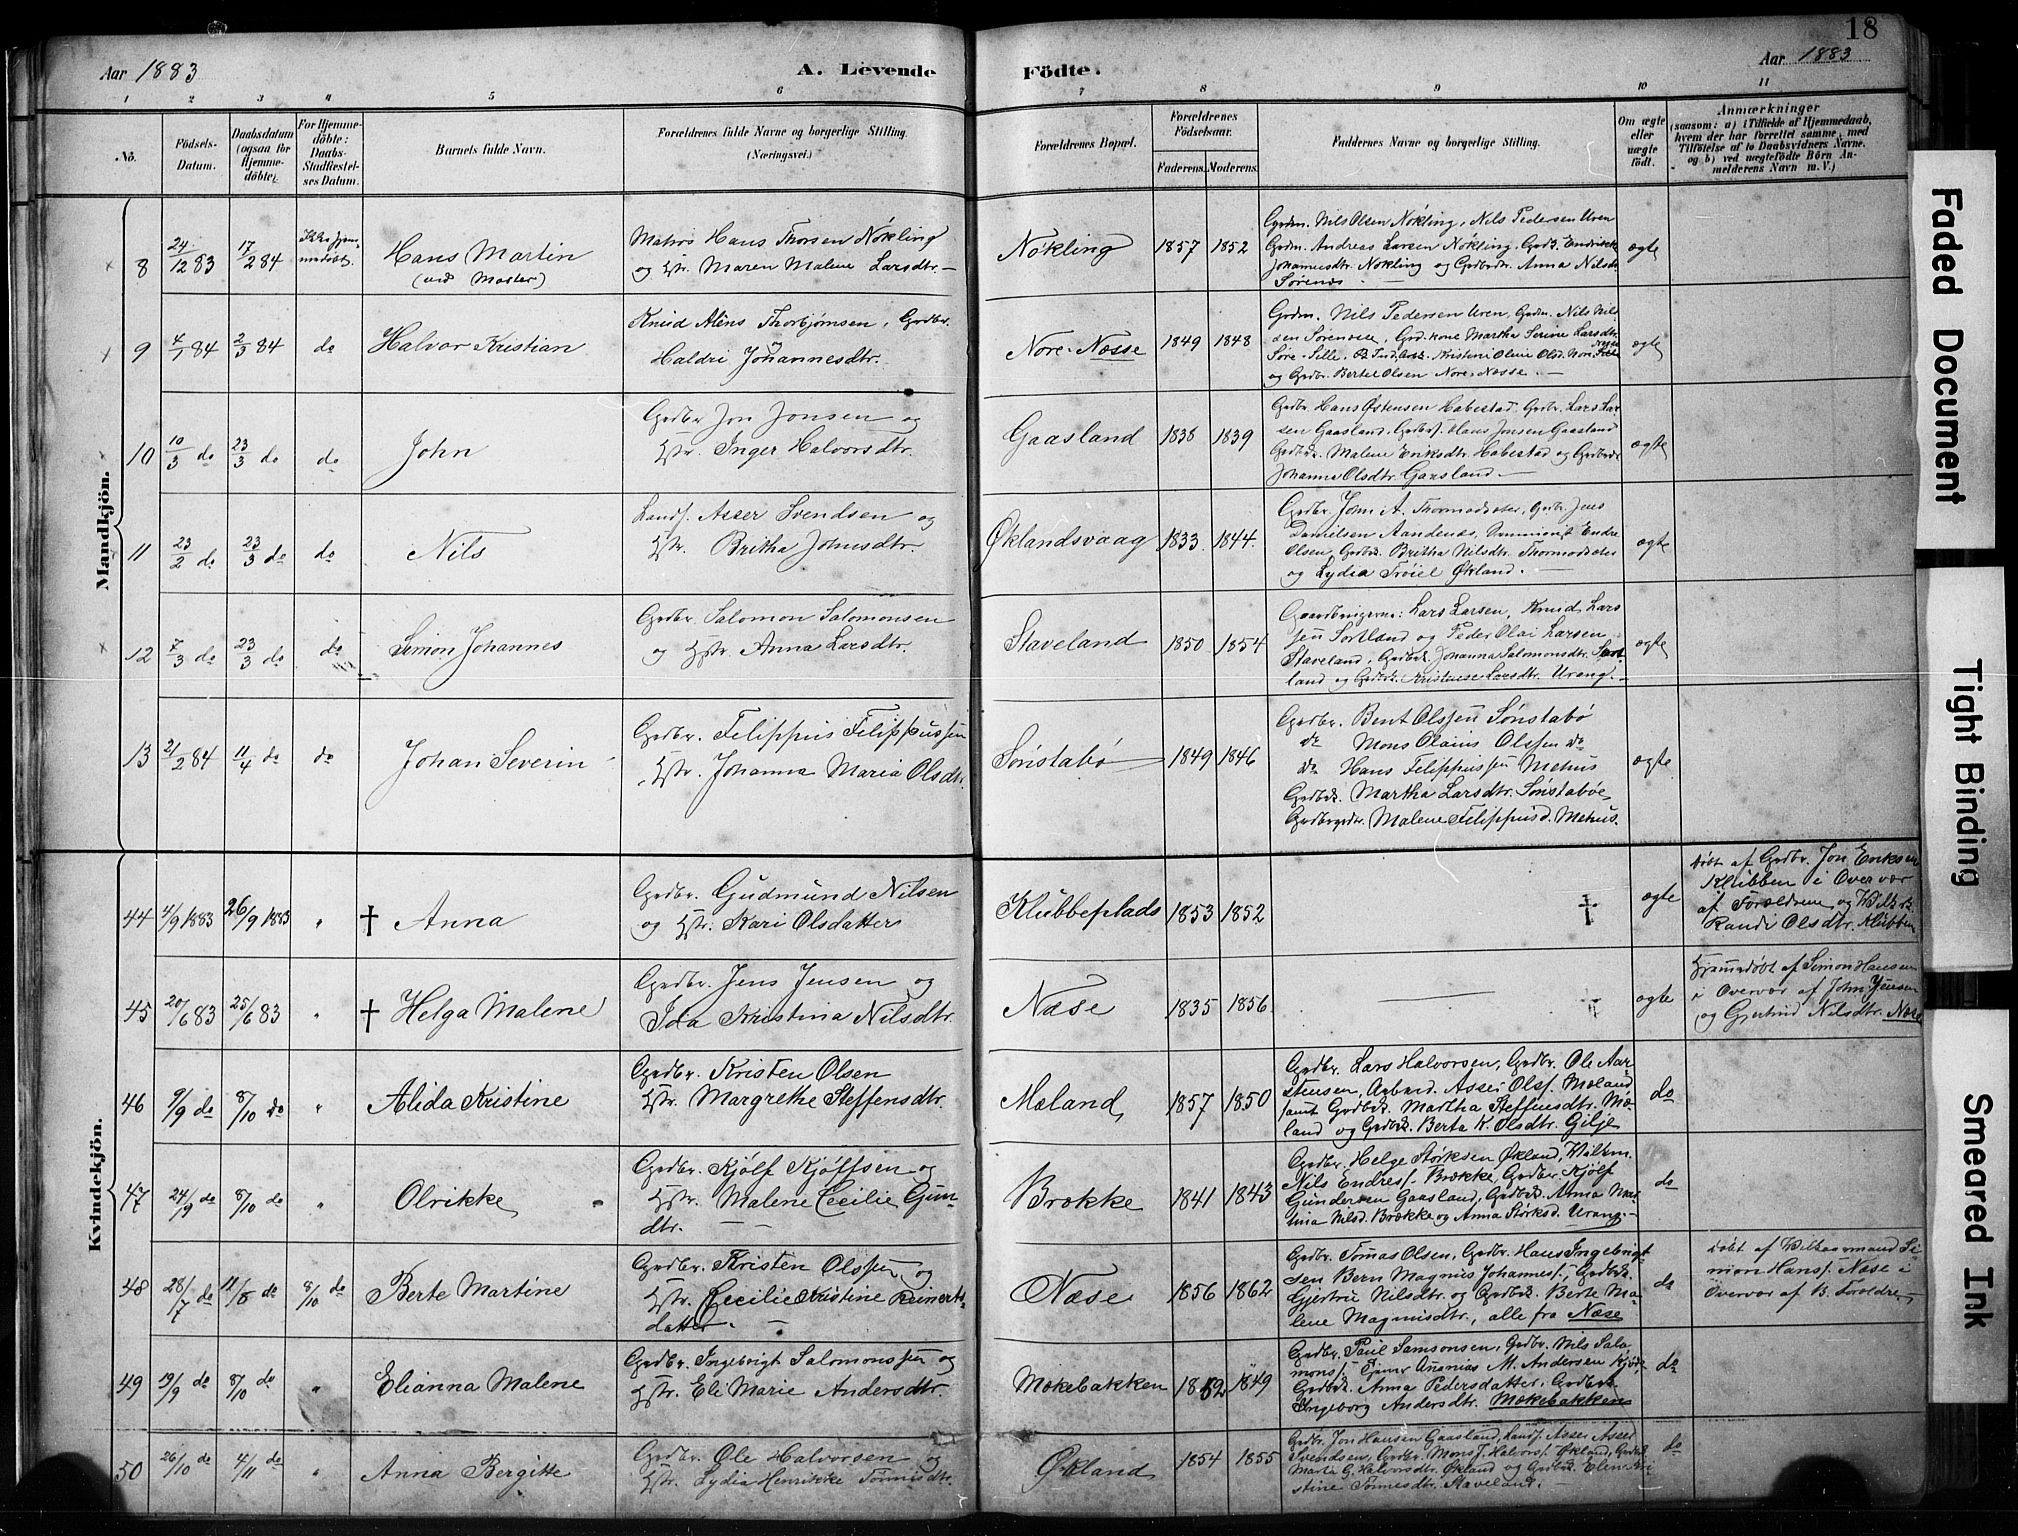 18
Aar 1883 A. Levende Födte. Aar 1883
1 2 3 4 5 6 7 8 9 10 11
No.
Födsels-
Datum.
Daabsdatum
(ogsaa for
Hjemme-
döbte).
For Hjemme-
döbte:
Daabs-
Stadfæstel-
ses Datum.
Barnets fulde Navn.
Forældrenes fulde Navne og borgerlige Stilling.
(Næringsvei.)
Forældrenes Bopæl.
Forældrenes
Födselsaar.
Faderens. Moderens.
Faddernes Navne og borgerlige Stilling.
Om ægte
eller
uægte
født.
Anmærkninger
(saasom: a) i Tilfælde af Hjemmedaab,
hvem der har forrettet samme, med
Tilföielse af to Daabsvidners Navne,
og b) ved uægtefödte Börn An-
melderens Navn m. V.)
Mandkjön.
8
24/12 83
17/2 84
Hans Martin
(ved Moster)
Matros Hans Thorsen Nøkling
og Hstr. Maren Malene Larsdtr.
Nøkling
1857 1852
Grdm. Nils Olsen Nøkling, Nils Pedersen Uren
Grdm. Andreas Larsen Nøkling, Grdk. Endrikke
Johannesdtr. Nøkling og Grdbrdtr. Anna Nilsdtr.
Sørenæs.
ægte
9
4/1 84
2/3 84
do
Halvor Kristian
Knud Aléns Thorbjørnsen, Grdbr.
Haldri Johannesdtr.
Nore-Næsse
1849 1848
Grdm. Nils Pedersen Uren, Grdm. Nils Nil
sen Sørenæs, Grd.kone Martha Serine Larsdtr.
Søre-Sille, Kristine Oline Olsd.
og Grdbr. Bertel Olsen Nore-Næsse.
ægte
10
10/3 do
23/3 do
do
John
Grdbr. Jon Jonsen og
Hstr. Inger Halvorsdtr.
Gaasland
1838 1839
Grdbr. Hans Østensen Habestad, Grdbr. Lars Lar
sen Gaasland, Grdbrs. Hans Jonsen Gaasland
Grdbk. Malene Eriksdtr. Habestad og Grdbrdtr.
Johanna Olsdtr. Gaasland
ægte
11
23/2 do
23/3 do
do
Nils
Lands. Asser Svendsen og
Hstr. Britha Johnsdtr.
Øklandsvaag
1833 1844
Grdbr. John A. Thormodsæter, Grdbr. Jens
Danielsen Aandenes, Endre
Olsen, Grdbk. Britha Nilsdtr. Thormodsæter
og Lydia Trøiel Økland.
ægte
12
7/3 do
23/3 do
do
Simon Johannes
Grdbr. Salomon Salomonsen
og Hstr. Anna Larsdtr.
Staveland
1850 1854
Gaardbrugerne: Lars Larsen, Knud Lars
sen Sortland og Peder Olai Larsen
Staveland, Grdbk. Johanna Salomonsdtr. Sort
land og Grdbk. Kristense Larsdtr. Urang.
ægte
13
2/2 84
11/4 do
do
Johan Severin
Grdbr. Filippus Filippussen
Hstr. Johanna Maria Olsdtr.
Sønstabø
1849 1846
Grdbr. Bent Olssen Sønstabø
do Mons Olaius Olssen do
do Hans Filippussen Mehus
Grdbk. Martha Larsdtr. Sønstabøe
Grdbrgdtr. Malene Filippusd. Mehus.
ægte
Kvindekjön.
44
4/9 1883
26/9 1883
"
† Anna
Grdbr. Gudmund Nilsen
og Hstr. Kari Olsdatter
Klubbeplads
1853 1852
†
ægte
Døbt af Grdbr. Jon Eriksen
Klubben i Overvær
af Forældrene og
Randi Olsdtr. Klubben
45
20/6 83
25/6 83
"
† Helga Malene
Grdbr. Jens Jensen og
Ida Kristina Nilsdtr.
Næse
1835 1856
†
ægte
Hjemmedøbt af Simon Hansen
i Overvær af John Jensen
og Gjertrud Nilsdtr. Næse
46
9/9 do
8/10 do
"
Alida Kristine
Grdbr. Kristen Olsen
Hstr. Margrethe Steffensdtr.
Mæland
1857 1850
Grdbr. Lars Halvorsen, Grdbr. Ole Aar
stensen, Asser Olss. Mæland
samt Grdbk. Martha Steffensdtr. Mæ
land og Grdbk. Berta K. Olsdtr. Gilje
do
47
24/9 do
8/10 do
"
Olrikke
Grdbr. Kjølf Kjølfsen og
Hstr. Malene Cecilie Gun
dtr.
Brække
1841 1843
Grdbr. Helge Størksen Økland,
Nils Endress. Brække, Grdbr. Kjølf
Gundersen Gaasland, Grdbk. Anna Mar
tina Nilsd. Brække og Anna Størksd. Urang.
do
48
28/7 do
11/8 do
8/10 do
Berte Martine
Grdbr. Kristen Olssen og
Hstr. Cecilie Kristine Reinerts
datter.
Næse
1856 1862
Grdbr. Tomas Olsen, Grdbr. Hans Ingebrigt
sen Bern Magnus Johanness., Grdbk.
Gjertru Nilsdtr. og Grdbk. Berte Ma
lene Magnusdtr., alle fra Næse
do
Døbt af Wilkaarmand Si
mon Hanss. Næse i
Overvær af B. Forældre
49
19/9 do
8/10 do
"
Elianna Malene
Grdbr. Ingebrigt Salomonssen og
Hstr. Eli Marie Andersdtr.
Mækebakken
1852 1849
Grdbr. Paul Samsonsen, Grdbr. Nils Sala
mons., Ananias M. Andersen
Grdbk. Anna Pedersdatter, Grdbrk.
Ingeborg Andersdtr. Mækebakken
do
50
26/10 do
4/11 do
"
Anna Bergitte
Grdbr. Ole Halvorsen og
Hstr. Lydia Henrikke Tønnesdtr.
Økland
1854 1855
Grdbr. Jon Hansen Gaasland, Lands. Asser Asser
Svendsen, Grdbr. Mons J. Halvors. Økland, Grdbk.
Marta G. Halvorsdtr. Økland og Grdbk. Elen Kri
stine Tønnesdtr. Staveland.
do
Faded Document
Tight Binding
Smeared Ink